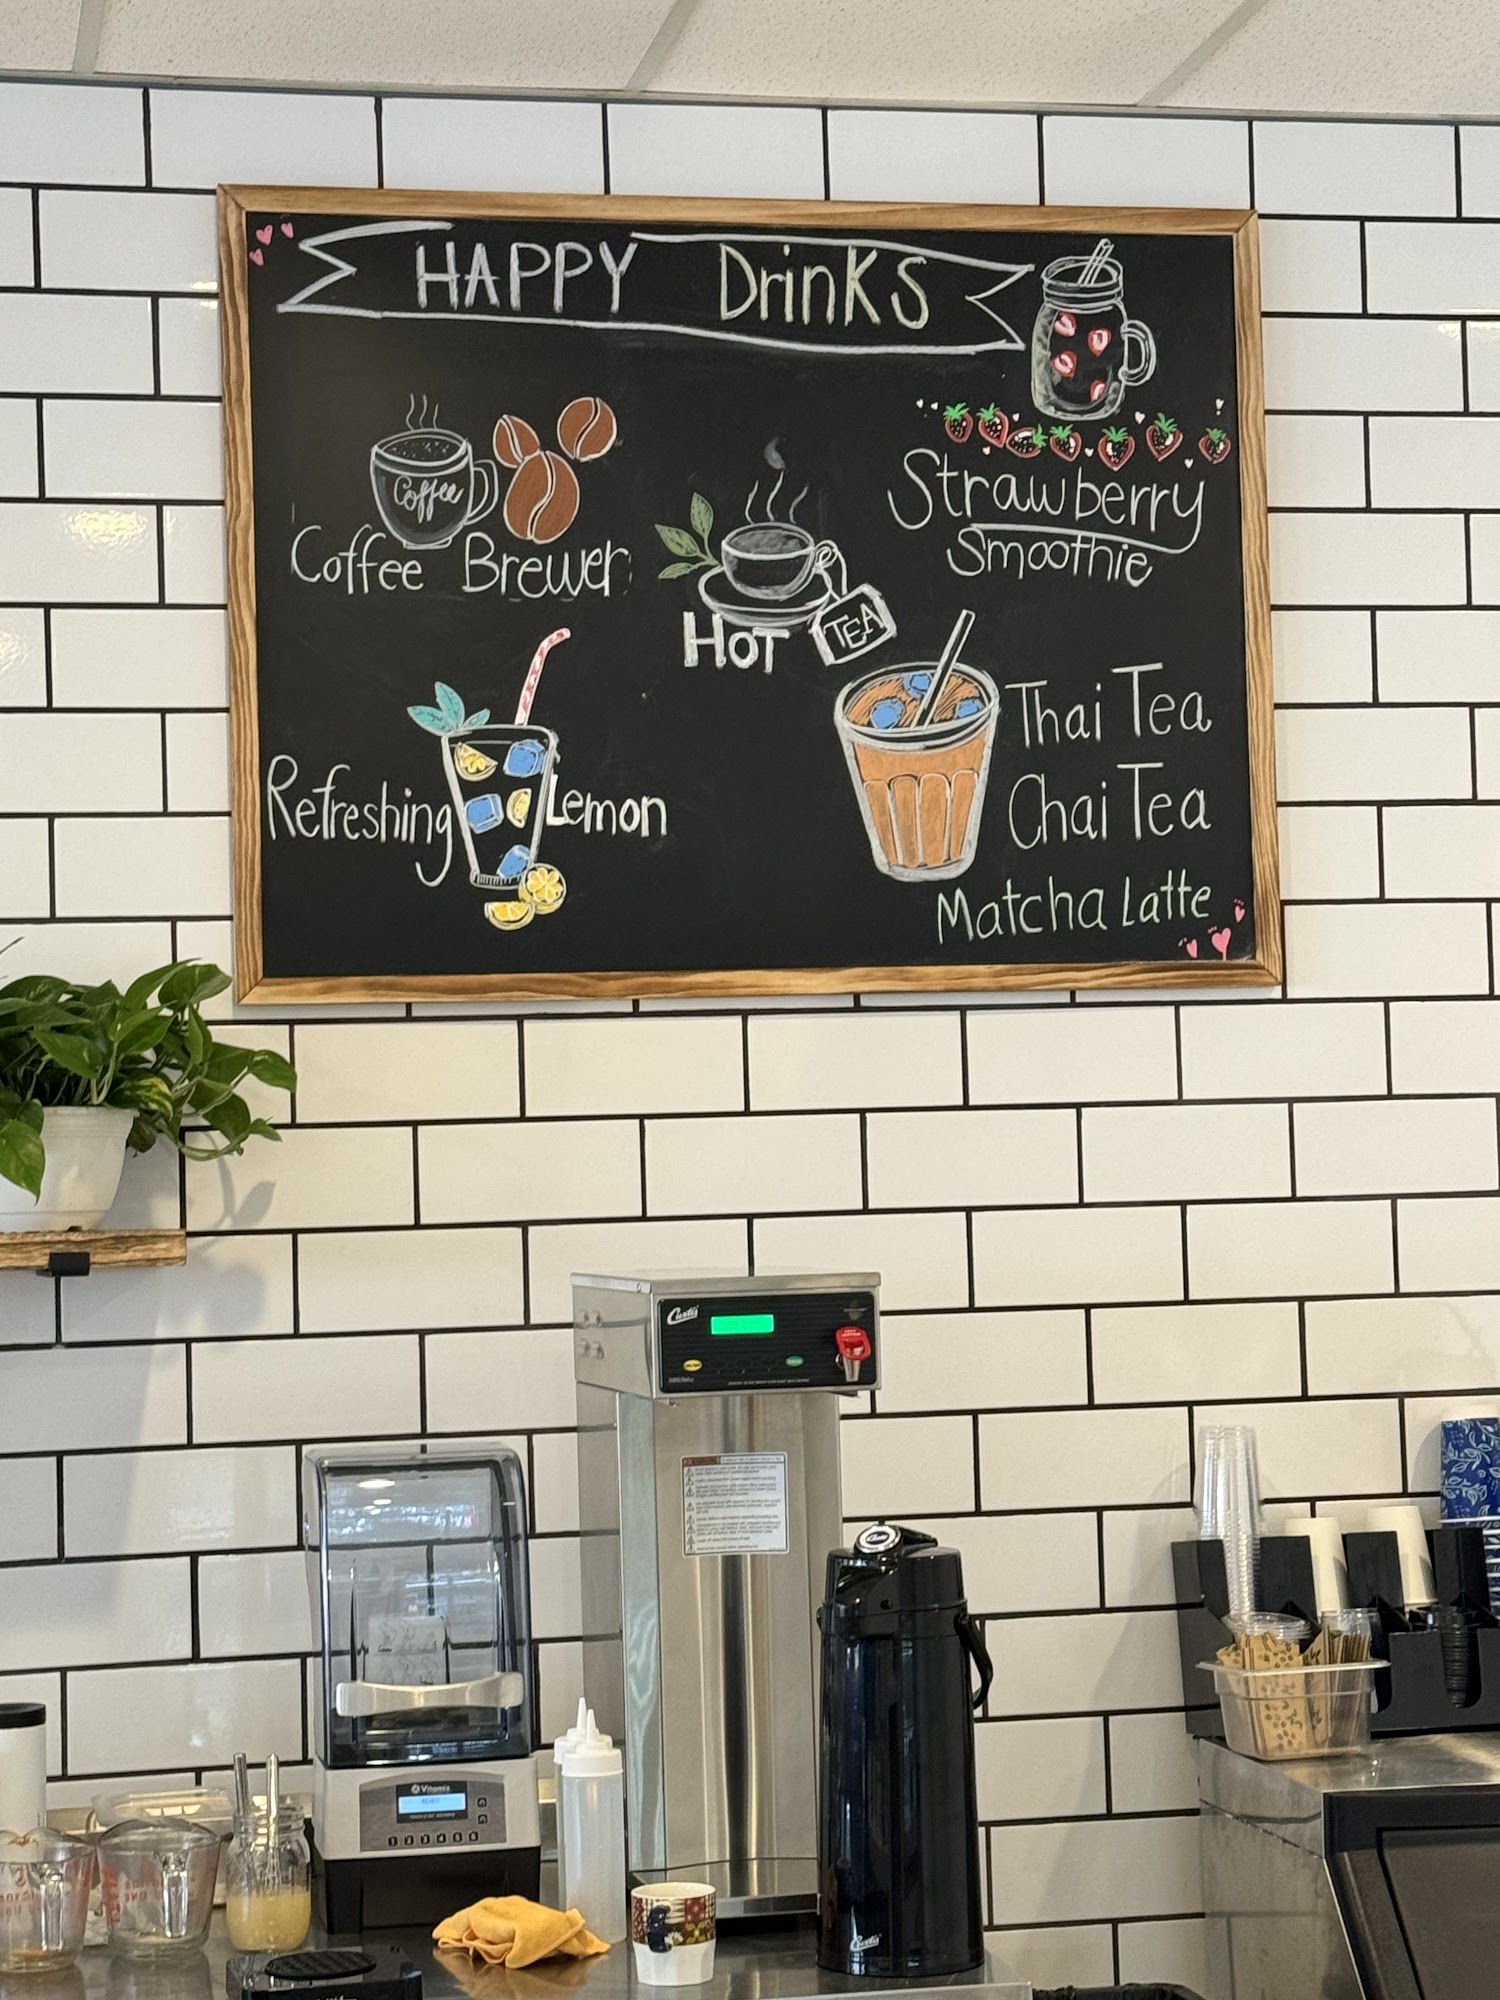 HAPPY Drinks
Coffee
Coffee Brewer
HOT TEA
Strawberry
Smoothie
Refreshing Lemon
Thai Tea
Chai Tea
Matcha Latte
Curtis
Vitamix
1 2 3 4 5 6
Curtis